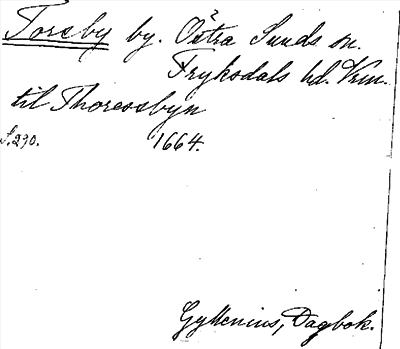 Torsby by. Östra Sunds sn.
Fryksdals hd. Vrm.
til Thoressbyn
S. 290. 1664.
Gyllenius, Dagbok.